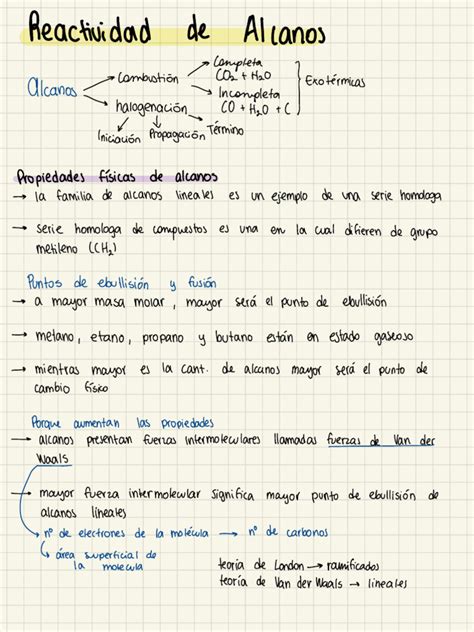 Reactividad de Alcanos
Completa
Combustión
CO₂ + H₂O
Exotérmicas
Alcanos
Incompleta
halogenación
CO + H₂O + C
Iniciación Propagación Término
Propiedades físicas de alcanos
→ la familia de alcanos lineales es un ejemplo de una serie homologa
→ serie homologa de compuestos es una en la cual difieren de grupo
metileno (CH₂)
Puntos de ebullisión y fusión
→ a mayor masa molar, mayor será el punto de ebullisión
→ metano, etano, propano y butano están en estado gaseoso
→ mientras mayor es la cant. de alcanos mayor será el punto de
cambio físico
Porque aumentan las propiedades
→ alcanos presentan fuerzas intermoleculares llamadas fuerzas de Van der
Waals
→ mayor fuerza intermolecular significa mayor punto de ebullisión de
alcanos líneales
nº de electrones de la molécula → nº de carbonos
área superficial de
la molecula
teoría de London → ramificados
teoría de Van der Waals → lineales